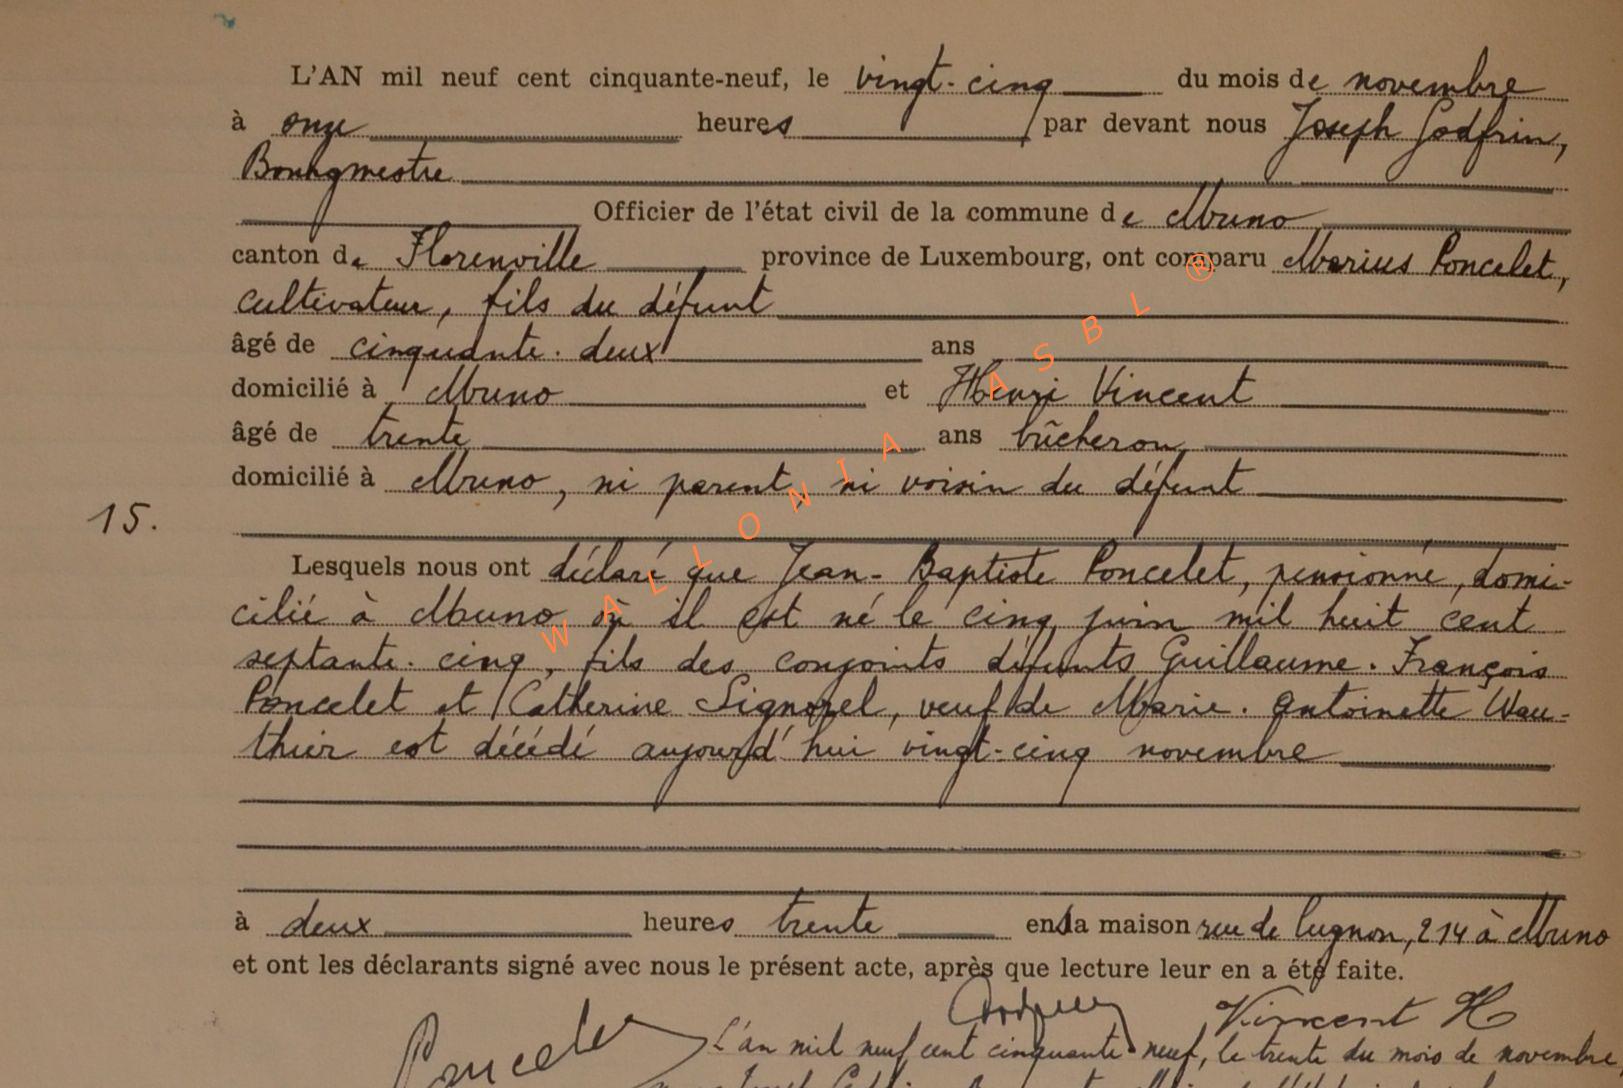 L'AN mil neuf cent cinquante-neuf, le vingt-cinq du mois de novembre
à onze heures par devant nous Joseph Godfrin,
Bourgmestre
Officier de l'état civil de la commune de Muno
canton de Florenville province de Luxembourg, ont comparu Marius Poncelet,
cultivateur, fils du défunt
âgé de cinquante-deux ans
domicilié à Muno et Henri Vincent
âgé de trente ans bûcheron
domicilié à Muno, ni parent, ni voisin du défunt
15.
Lesquels nous ont déclaré que Jean-Baptiste Poncelet, pensionné, domi-
cilié à Muno où il est né le cinq juin mil huit cent
septante-cinq, fils des conjoints défunts Guillaume-François
Poncelet et Catherine Signorel, veuf de Marie-Antoinette Wau-
thier est décédé aujourd'hui vingt-cinq novembre
à deux heures trente en la maison rue de Lugnon, 214 à Muno
et ont les déclarants signé avec nous le présent acte, après que lecture leur en a été faite.
Poncelet Godfrin Vincent H
L'an mil neuf cent cinquante-neuf, le trente du mois de novembre
WALLONIA ASBL ®